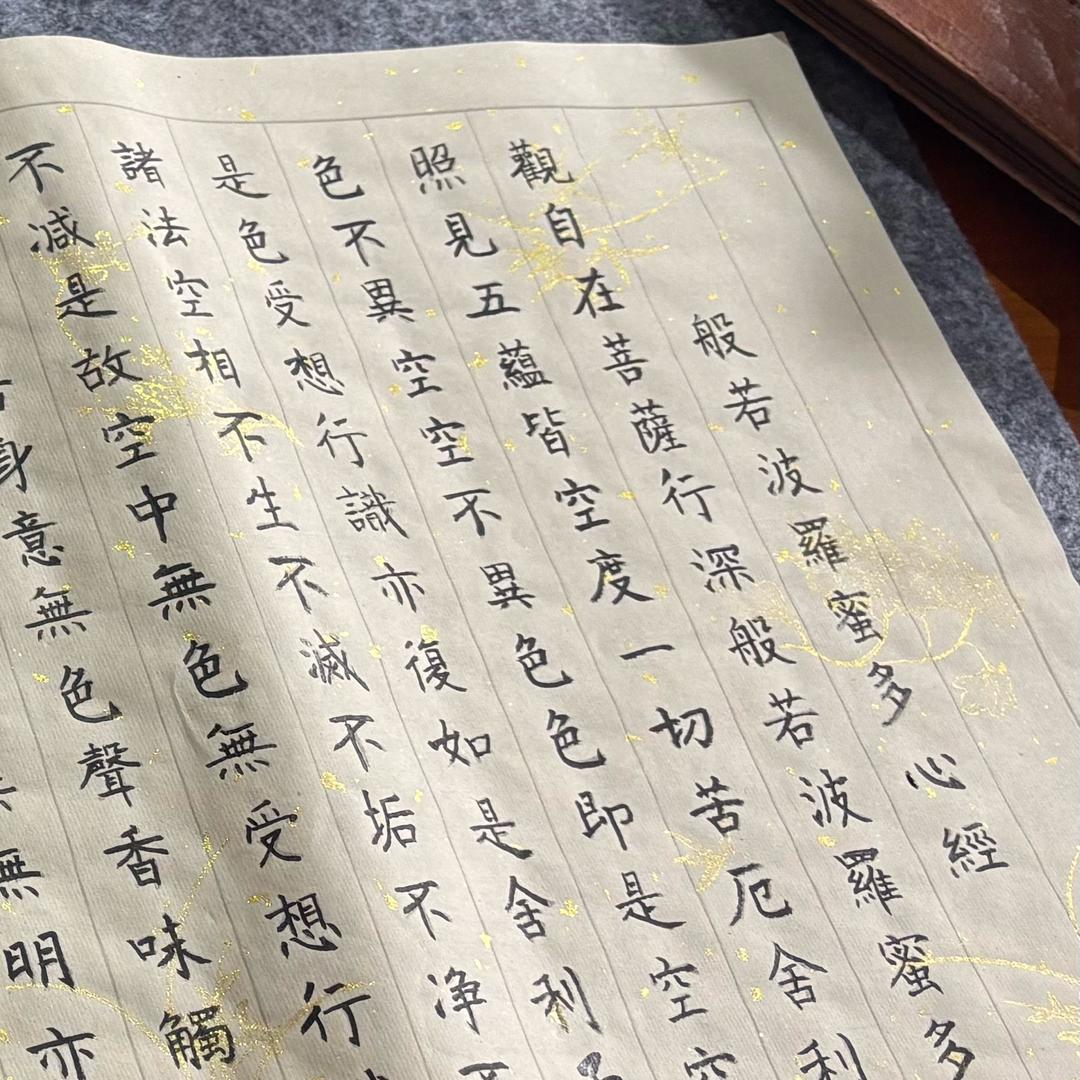 般若波羅蜜多心經
觀自在菩薩行深般若波羅蜜多
照見五蘊皆空度一切苦厄舍利
色不異空空不異色色即是空空
是色受想行識亦復如是舍利子
諸法空相不生不滅不垢不净不
不减是故空中無色無受想行
身意無色聲香味觸
無明亦